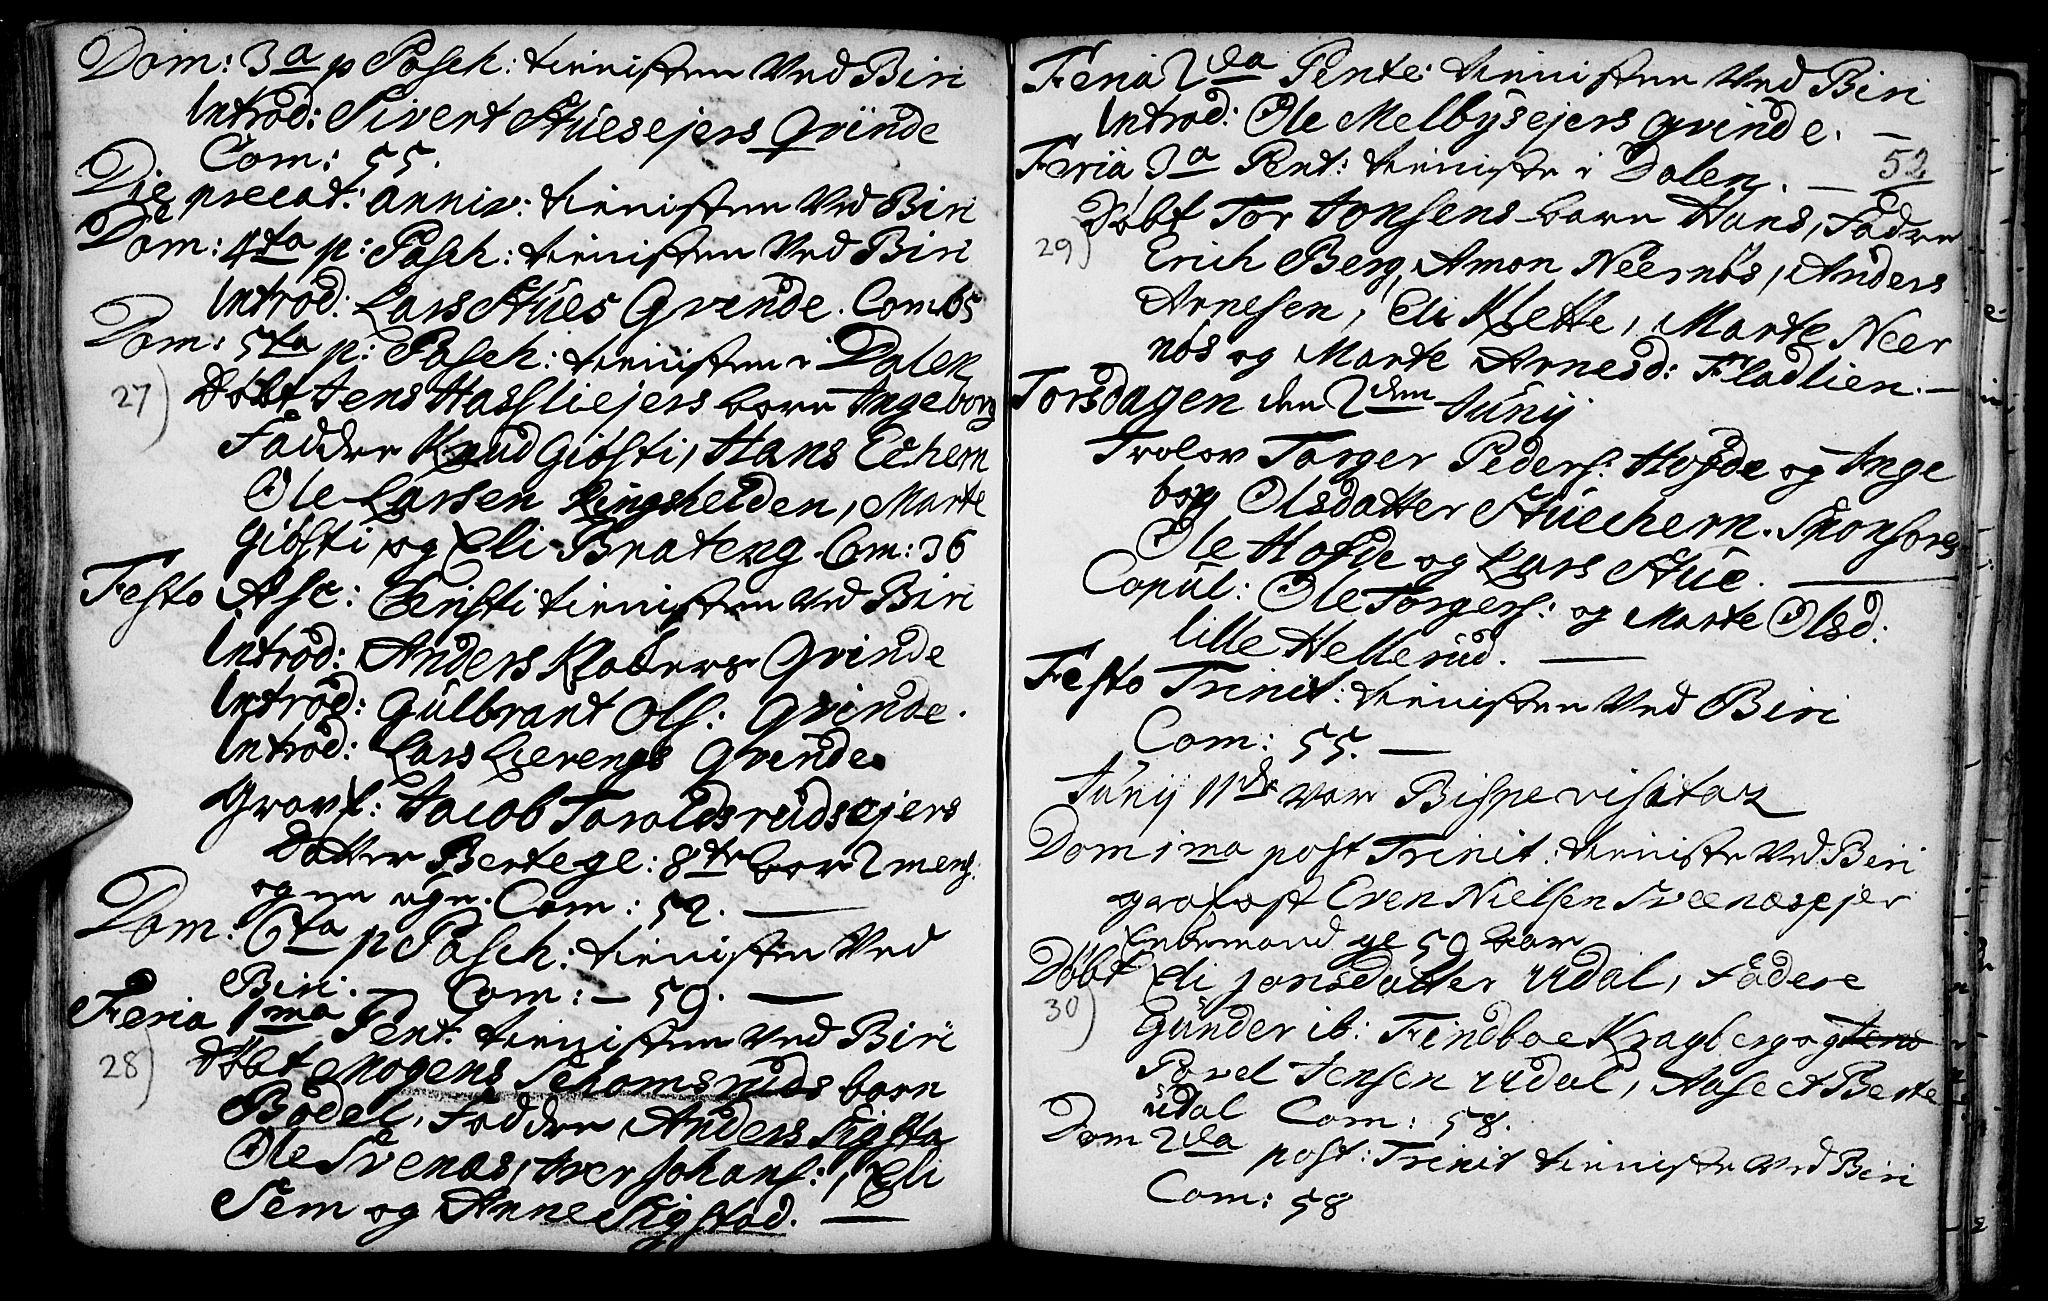 Dom: 3a p Pasch: tienisten Ved Biri
Introd: Sivert Stuesejers Qvinde
Com: 55.
Die precat: anniv: tienisten Ved Biri
Dom: 4ta p: Pasch: tienisten Ved Biri
Introd: Lars Stues Qvinde. Com: 65
Dom: 5ta p: Pasch: tienisten i Dalen
27) Döbt Jens Hassliejers barn Ingeborg
Faddre Knud Giösti, Hans Echern
Ole Larsen Ringshelden, Marte
Giösti og Eli Brateng. Com: 36
Festo Asc: Christi tienisten Ved Biri
Introd: Anders Klabers Qvinde
Introd: Gulbrant Ols: Qvinde.
Introd: Lars Lierengs Qvinde
Gravf: Jacob Taraldsrudsejers
Datter Berte ge: 8te 2 mens
og en uge. Com: 52.
Dom: 6ta p Pasch: tienisten Ved
Biri. — Com: — 59. —
Feria 1ma Pent: tienisten Ved Biri
28) Döbt Mogens Schomsruds barn
Bodel, Faddre Anders Sigsta
Ole Svenæs, Iver Johans:, Eli
Sem og Anne Sigstad. —
Feria 2da Pente: tienisten Ved Biri
Introd: Ole Melbysejers qvinde. —
52
Feria 3a Pent: tieniste i Dalen. —
29) Döbt Tor Jonsens barn Hans, Faddre
Erich Berg, Amon Neernös, Anders
Arnesen, Eli Klette, Marte Neer
nös og Marte Arnesd: Fladlien. —
Torsdagen den 2den Junij
Trolov Torger Peders: Hofde og Inge
borg Olsdatter Stuechern. Sponsores
Ole Hofde og Lars Stue. —
Copul: Ole Torgers: og Marte Olsd:
lille Hellerud. —
Festo Trinit: tienisten Ved Biri
Com: 55. —
Junij 11de var Bispe visitatz
Dom 1ma post Trinit: tieniste Ved Biri
grafæst Even Nielsen Sveenæsejer
Enkemand ge 59 aar
Döbt Eli jonsdatter Udal, Fadere
30) Gunder ib: Findboe Kragberg og Jens
Povel Jensen Udal, Aase et Berte
Udal Com: 58.
Dom 2da post: Trinit tieniste Ved Biri
Com: 58